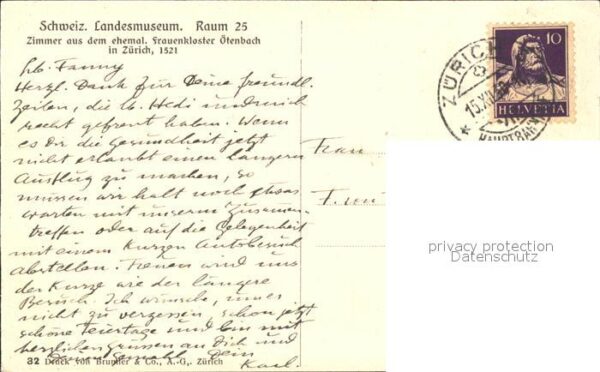 Schweiz. Landesmuseum. Raum 25
Zimmer aus dem ehemal. Frauenkloster Ötenbach
in Zürich, 1521
Lb. Fanny
Herzl. Dank für Deine freundl.
Zeilen, die lb. Hedi und mich
recht gefreut haben. Wenn
es Dir die Gesundheit jetzt
nicht erlaubt einen längern
Ausflug zu machen, so
müssen wir halt noch etwas
warten mit unserm Zusammen-
treffen oder auf die Gelegenheit
mit einem kurzen Autobesuch
abstellen. Freuen wird uns
der kurze wie der längere
Besuch. Ich wünsche, um es
nicht zu vergessen, schon jetzt
schöne Feiertage und bin mit
herzlichen Grüssen an Dich und
Dein
Karl.
32 Druck von Brunner & Co., A.-G., Zürich
Frau
10
HELVETIA
ZÜRICH
15.XII.
privacy protection
Datenschutz